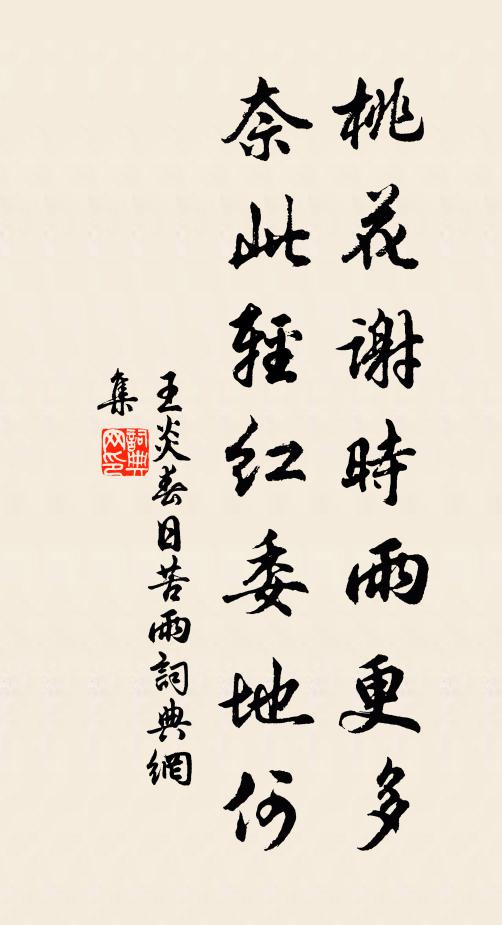 桃花謝時雨更多
奈此輕紅委地何
王炎春日苦雨詞典網
集
詞典网印